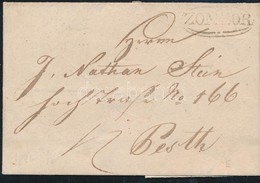 ZOMBOR
Herrn
J. Nathan Stein
hochstraße No 166
Pesth